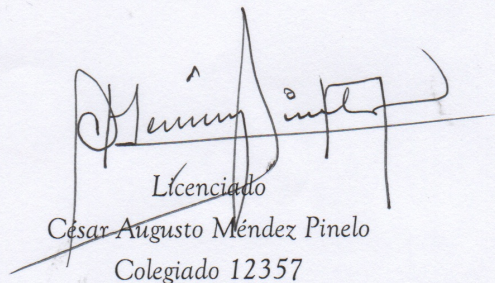 Licenciado
César Augusto Méndez Pinelo
Colegiado 12357